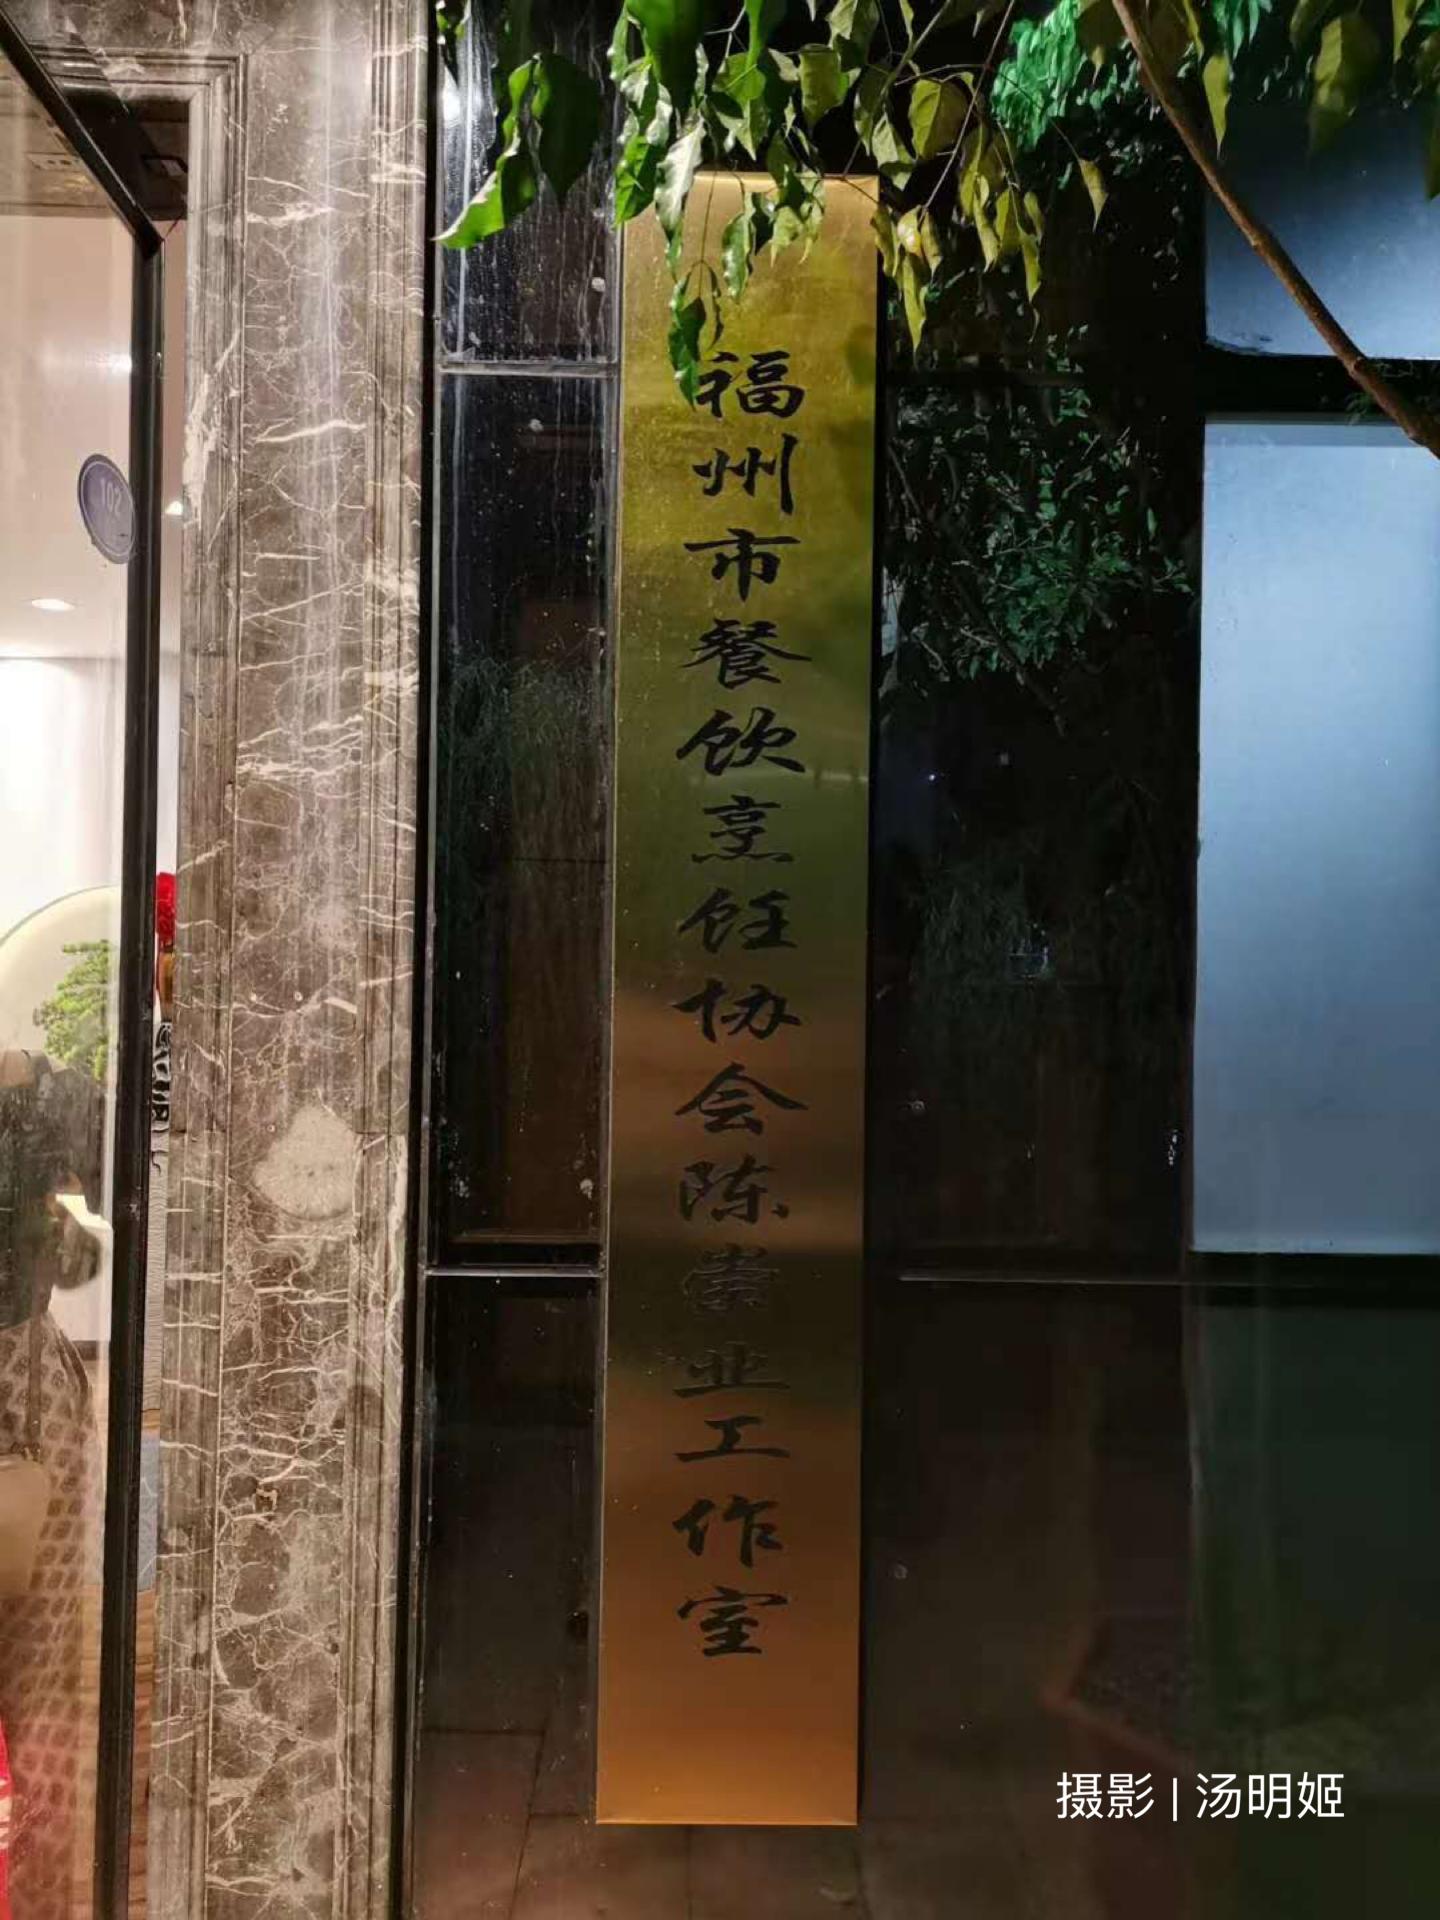 福州市餐饮烹饪协会陈崇业工作室
102
摄影 | 汤明姬